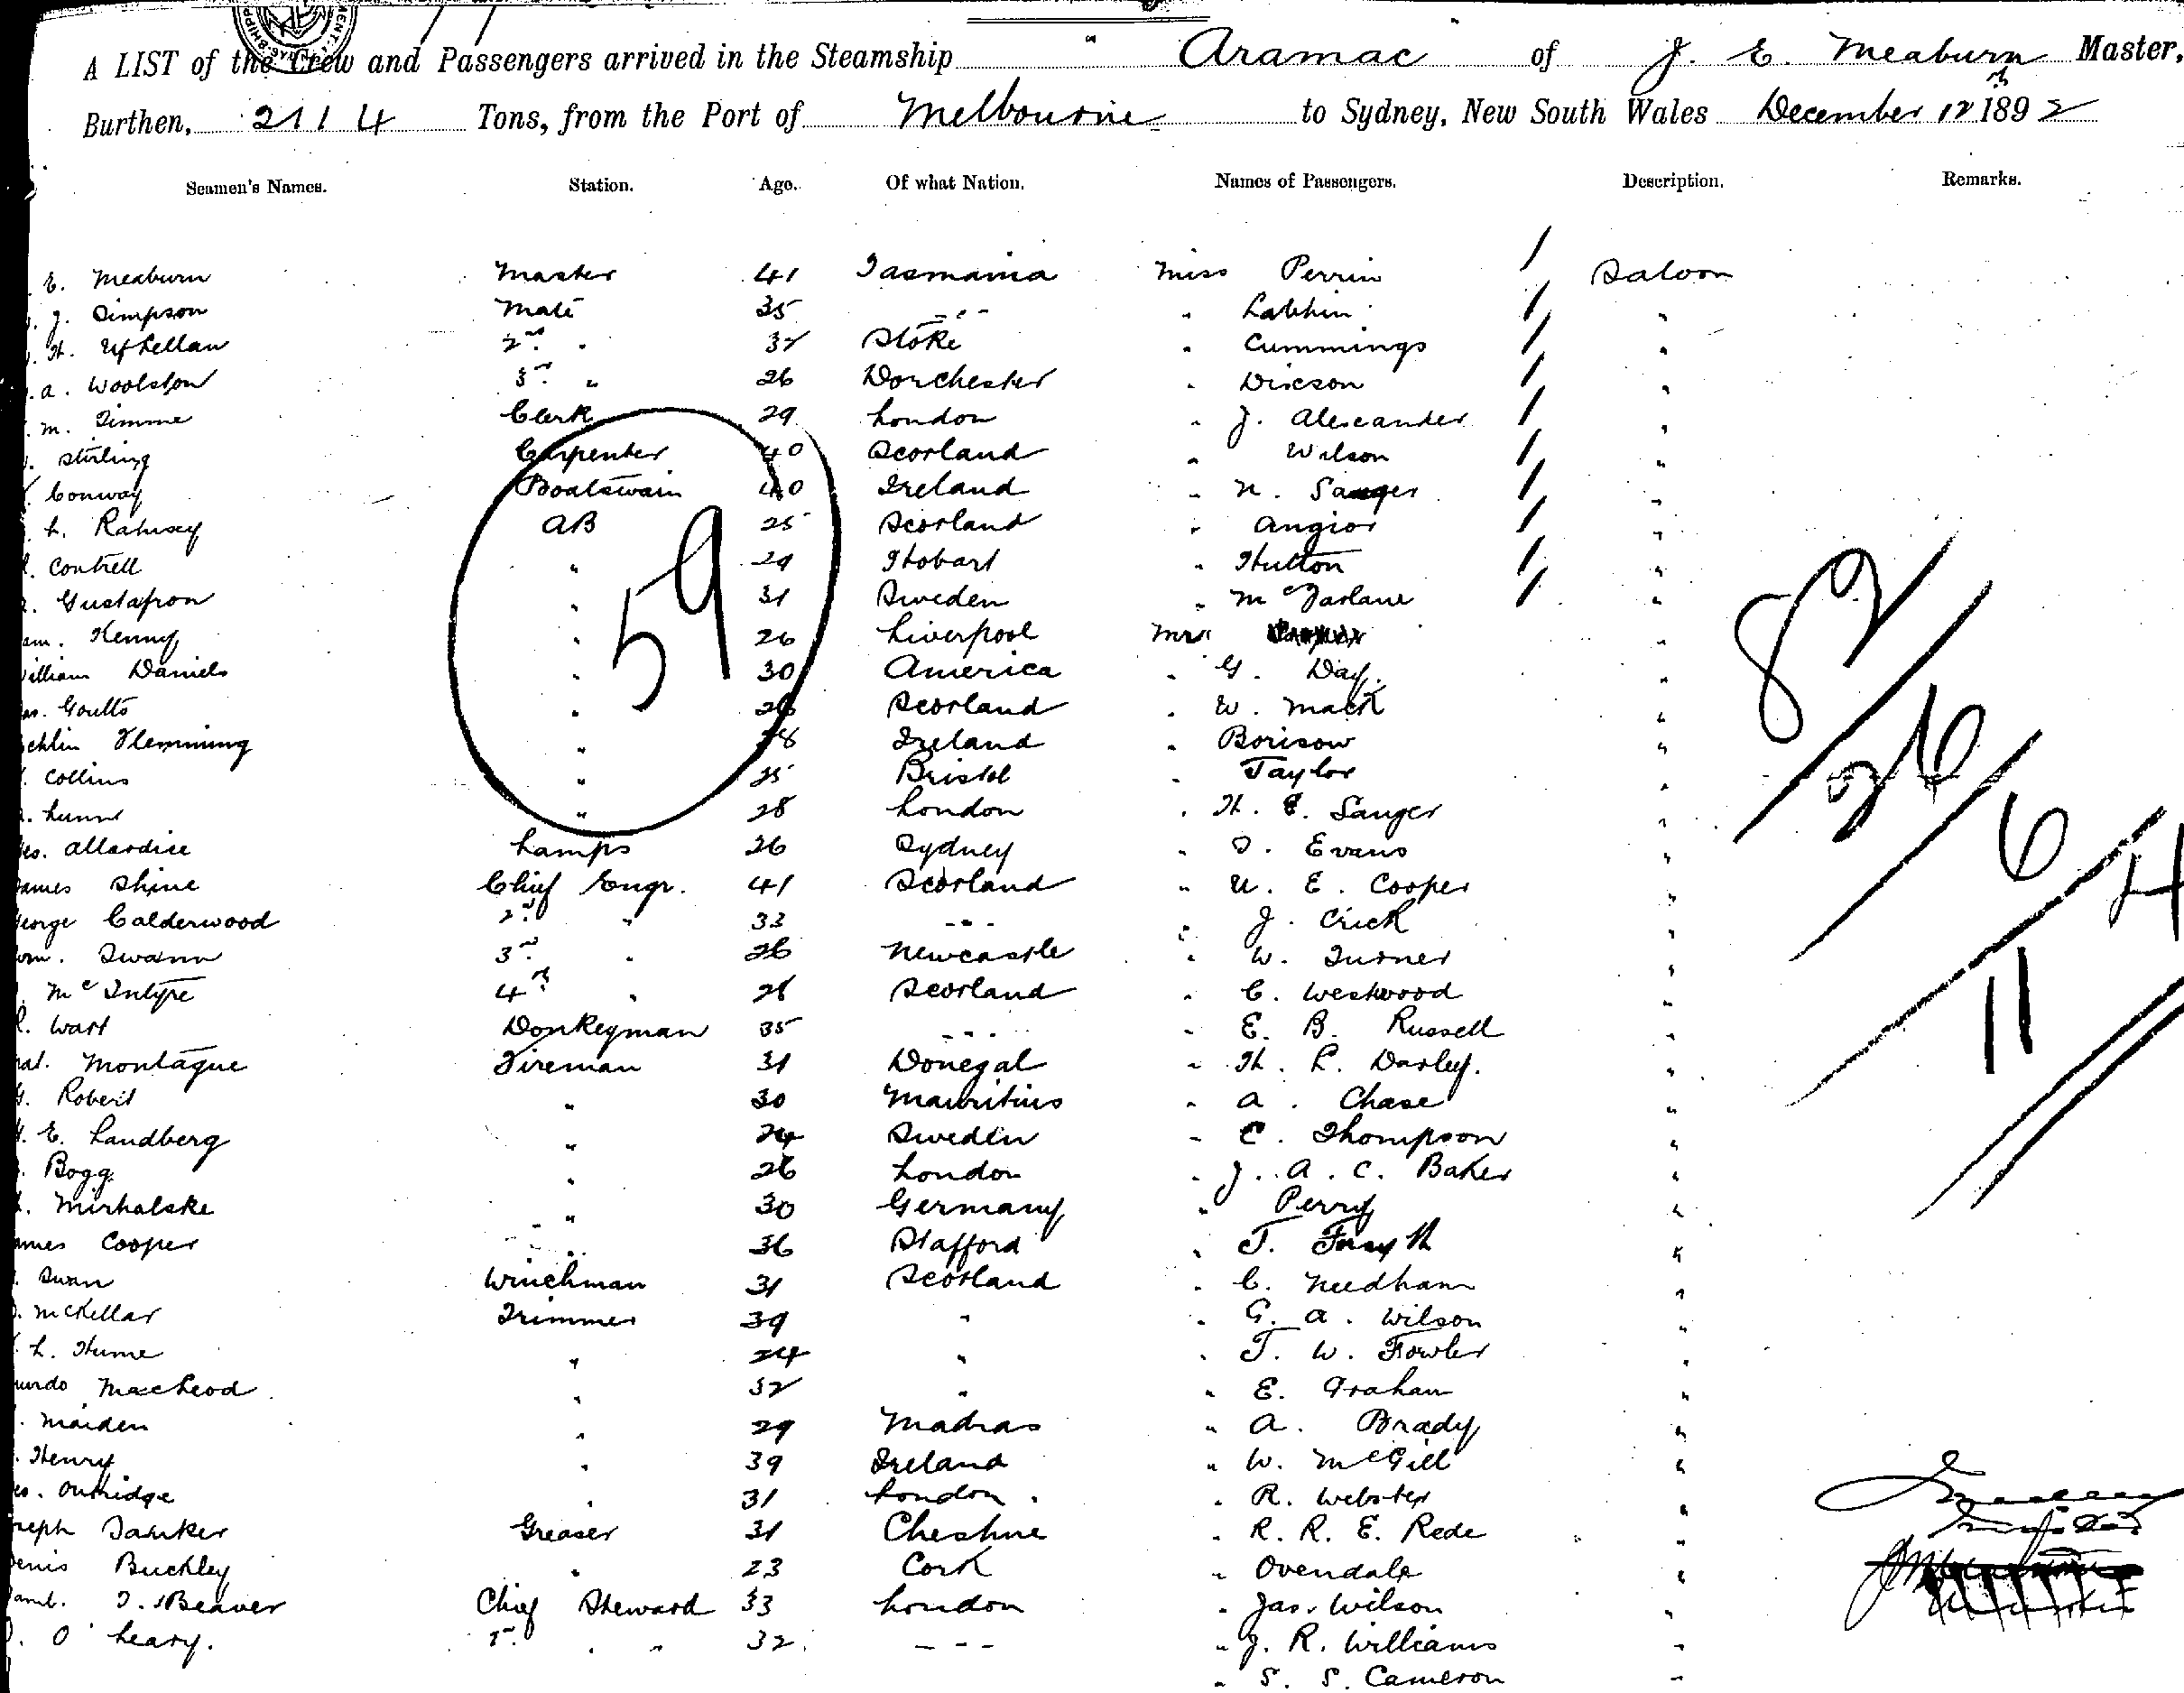 A LIST of the Crew and Passengers arrived in the Steamship " Aramac of J. E. Meaburn Master,
Burthen, 2114 Tons, from the Port of Melbourne to Sydney, New South Wales December 12th 1892
Seamen's Names. Station. Age. Of what Nation. Names of Passengers. Description. Remarks.
E. Meaburn Master 41 Tasmania Miss Perrin / Saloon
J. Simpson Mate 35 - - - " / "
H. 2nd " 32 Stoke " Cummings / "
A. Woolston 3rd " 26 Dorchester " Dixson / "
M. Timme Clerk 29 London " J. Alexander / "
Stirling Carpenter 40 Scotland " Wilson / "
Conway Boatswain 40 Ireland " N. Sanger / "
L. Ramsey AB 25 Scotland " Angior / "
Contrell " 29 Hobart " Hutton / "
Gustafson " 31 Sweden " McFarlane / "
Kenny " 26 Liverpool Mr "
William Daniels " 30 America " G. Day. "
Goults " 26 Scotland " W. Mack "
Flemming " 28 Ireland " Borisow "
Collins " 25 Bristol " Taylor "
Lunn " 28 London " H. E. Sanger "
Allardice Lamps 26 Sydney " D. Evans "
James Shine Chief Engr. 41 Scotland " U. E. Cooper "
George Calderwood 2nd " 33 - - - " J. Crick "
Swann 3rd " 26 Newcastle " W. Turner "
McIntyre 4th " 28 Scotland " C. Westwood "
Watt Donkeyman 35 - - - " E. B. Russell "
Montague Fireman 31 Donegal " H. L. Darley. "
Robert " 30 Mauritius " A. Chase "
E. Landberg " 24 Sweden " C. Thompson "
Bogg " 26 London " J. A. C. Baker "
Mirhalske " 30 Germany " Perry "
James Cooper " 36 Stafford " T. Forsyth "
Swan Winchman 31 Scotland " C. Needham "
McKellar Trimmer 39 " " G. A. Wilson "
L. Hume " 24 " " T. W. Fowler "
Murdo MacLeod " 32 " " E. Graham "
Maiden " 29 Madras " A. Brady "
Henry " 39 Ireland " W. McGill "
Outridge " 31 London. " R. Webster "
Joseph Tanker Greaser 31 Cheshire " R. R. E. Rede "
Denis Buckley " 23 Cork " Ovendale "
T. Beaver Chief Steward 33 London " Jas. Wilson "
O'Leary. 2nd " " 32 - - - " J. R. Williams "
" S. S. Cameron "
59
82
26
6
11